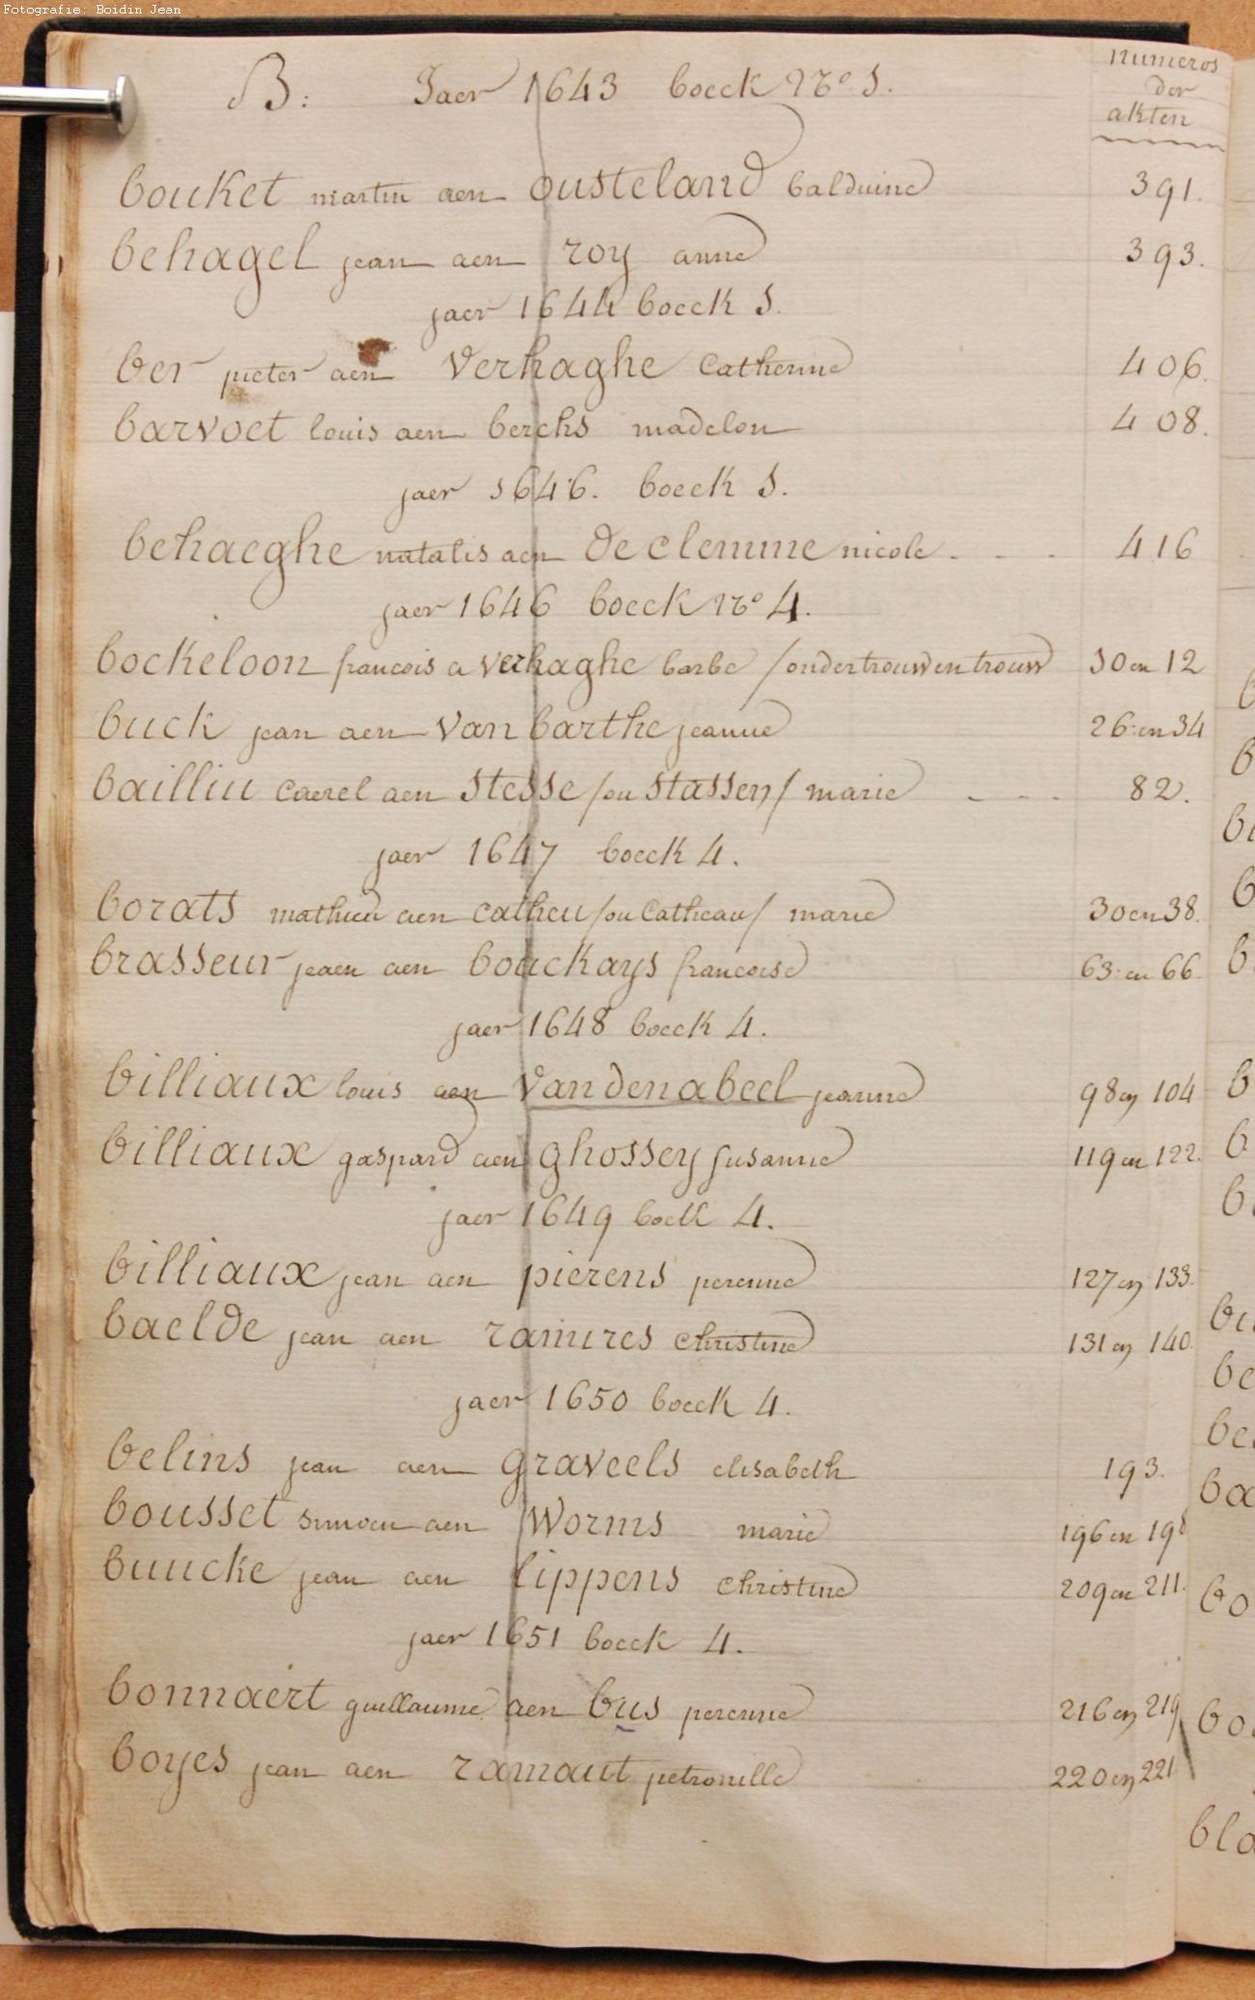 Fotografie: Boidin Jean
B: Jaer 1643 boeck No 1.
numeros
der
akten
bouket martin aen ousteland balduine 391.
behagel jean aen roy anne 393.
jaer 1644 boeck 1.
ber pieter aen verhaghe catherine 406.
barvoet louis aen berchs madelon 408.
jaer 1646. boeck 1.
behaeghe natalis aen de clemme nicole - - - 416
jaer 1646 boeck No 4.
bockeloon francois a verhaghe barbe /ondertrouw en trouw 10 en 12
buck jean aen van barthe jeanne 26 en 34
bailliu caerel aen stesse /ou stassen/ marie - - - 82.
jaer 1647 boeck 4.
borats mathieu aen catheu /ou catheau/ marie 30 en 38.
brasseur jeaen aen bouckays francoise 63 en 66
jaer 1648 boeck 4.
billiaux louis aen vandenabeel jeanne 98 en 104
billiaux gaspard aen ghossey susanne 119 en 122.
jaer 1649 boek 4.
billiaux jean aen pierens perenne 127 en 133.
baelde jean aen ramires christine 131 en 140.
jaer 1650 boeck 4.
belins jean aen graveels elisabeth 193.
bousset simoen aen worms marie 196 en 198
buucke jean aen lippens christine 209 en 211.
jaer 1651 boeck 4.
bonnaert guillaume aen bus perenne 216 en 219
boyes jean aen ramaut petronille 220 en 221